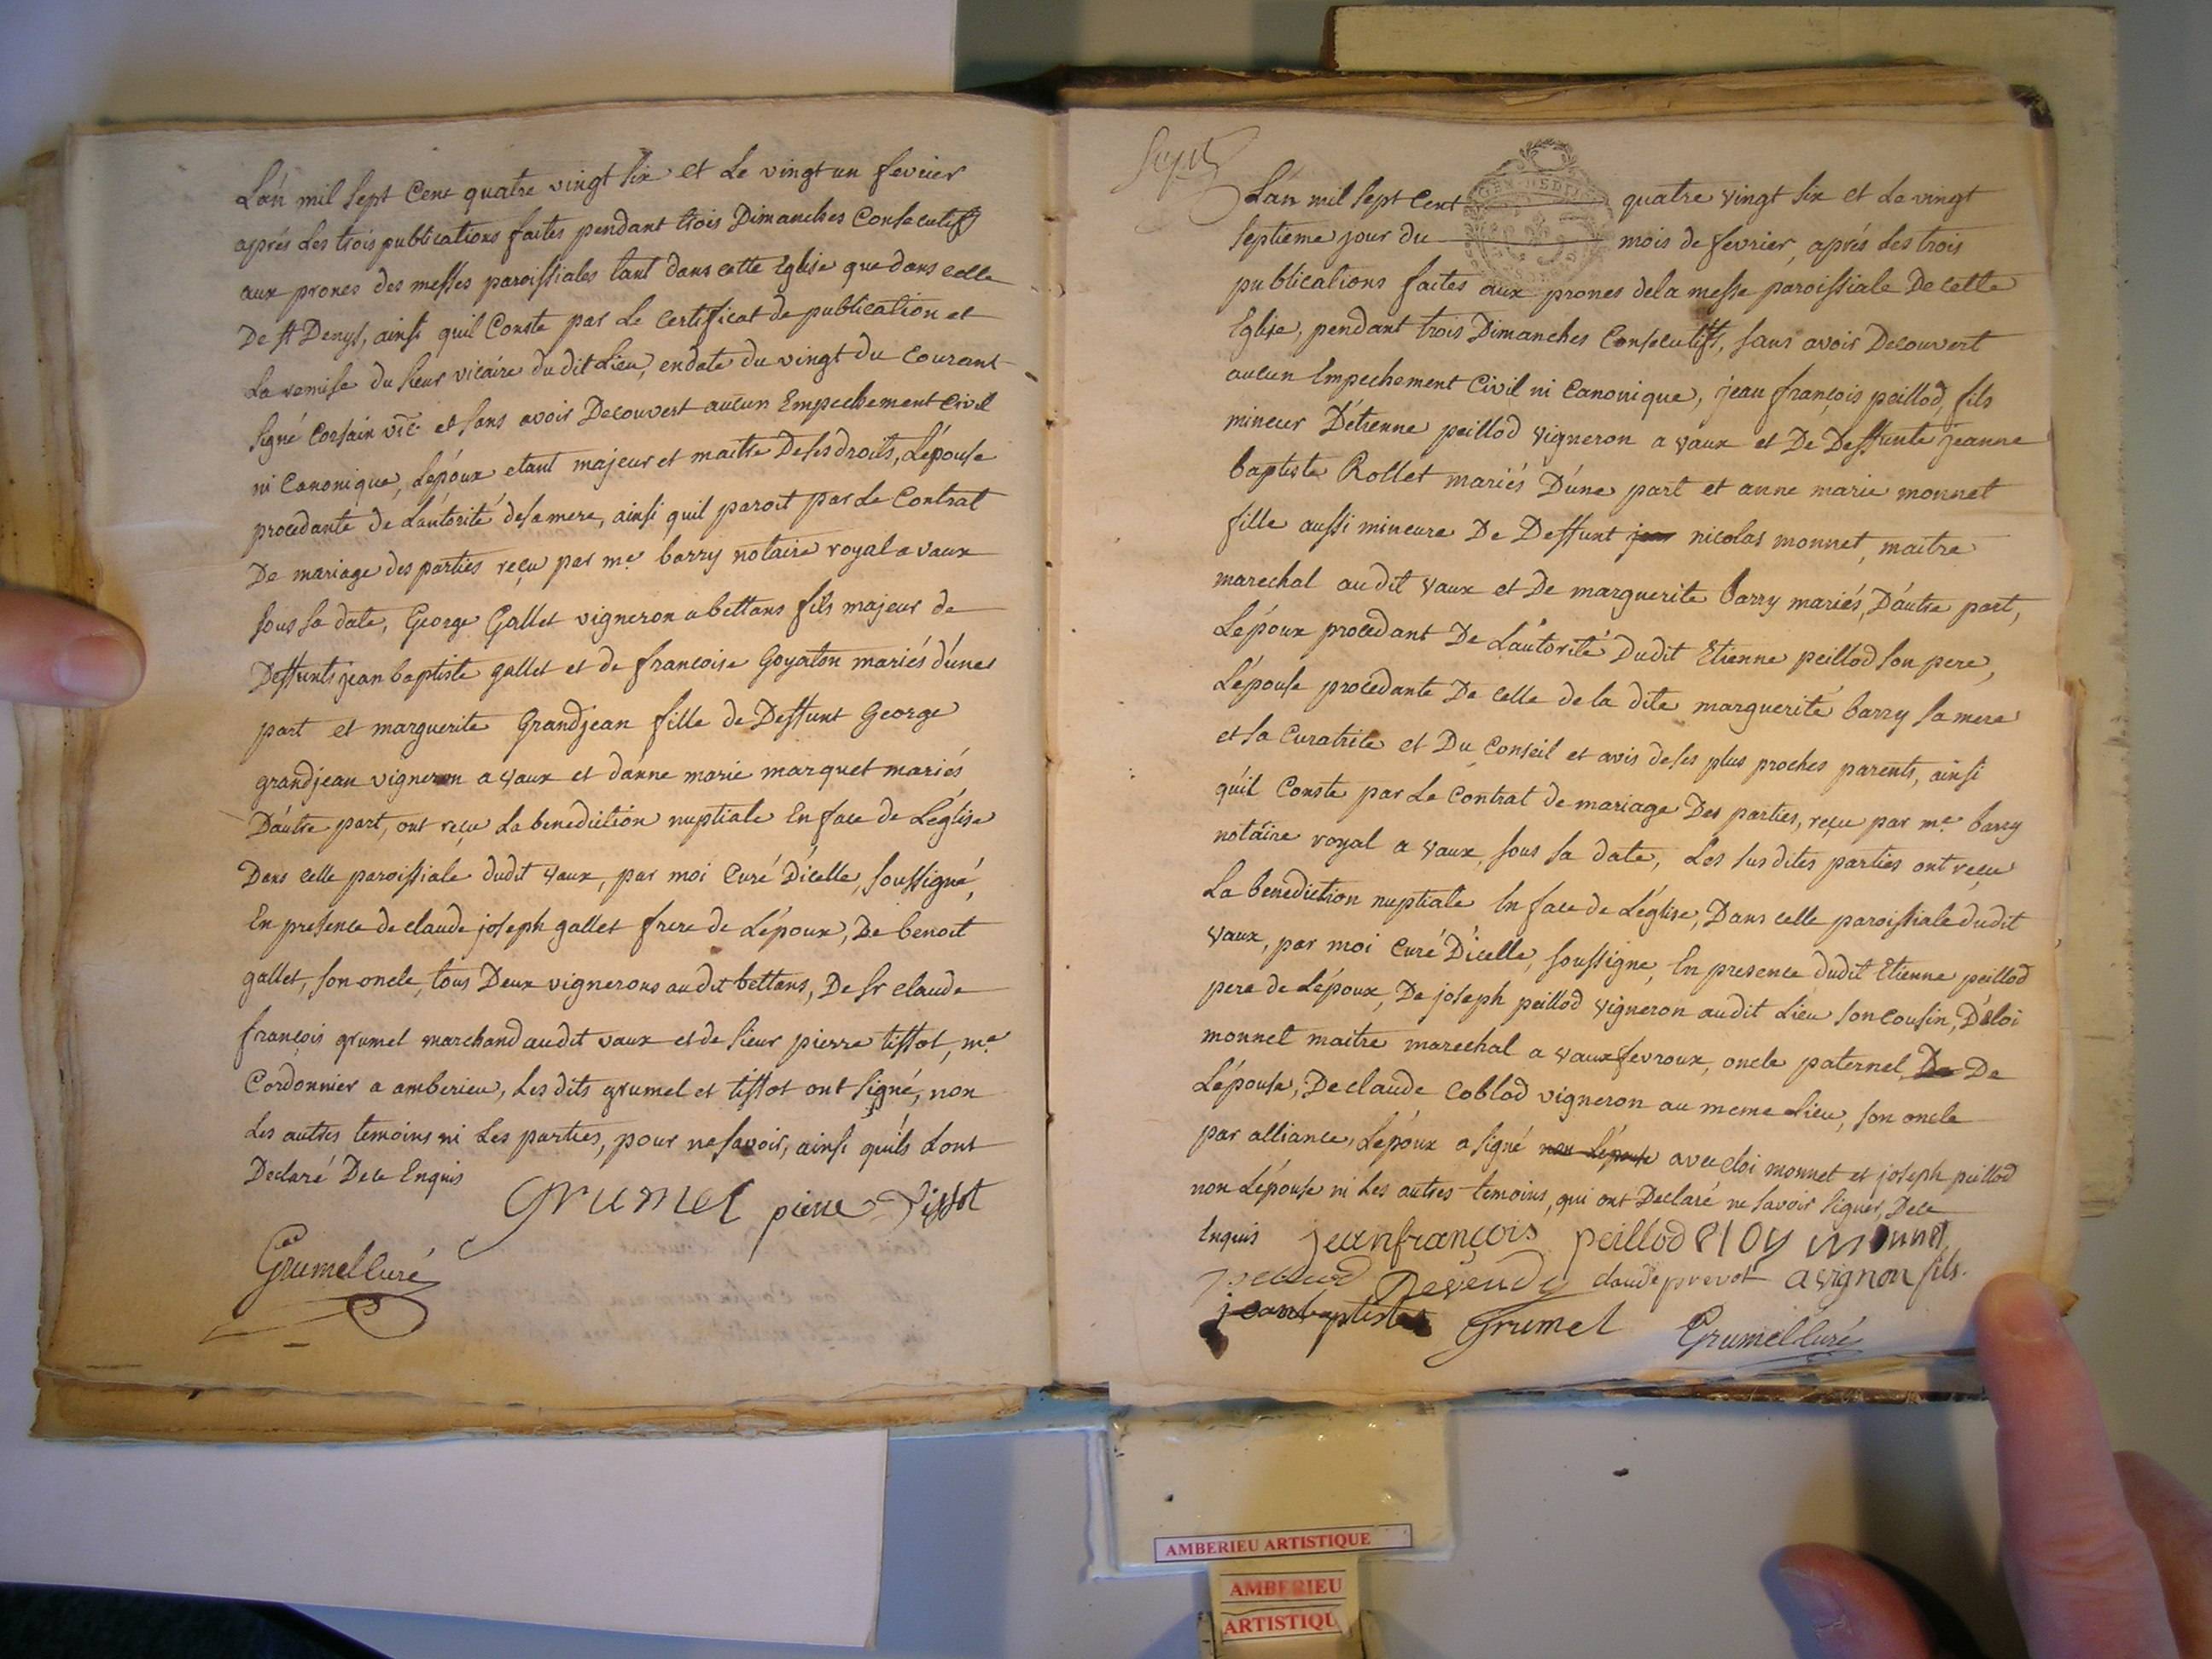 L'an mil sept Cent quatre vingt six et Le vingt un fevrier
aprés Les trois publications faites pendant trois Dimanches Consecutifs
aux prones des messes paroissiales tant dans cette Eglise que dans celle
De st Denys, ainsi quil Conste par Le Certificat de publication et
La remise du sieur vicaire du dit Lieu, en date du vingt du Courant
signé Corsain vic et sans avoir Decouvert aucun Empechement Civil
ni Canonique, L'epoux etant majeur et maitre De ses droits, L'épouse
procedante de L'autorité de sa mere, ainsi quil paroit par Le Contrat
De mariage des parties reçu par me barry notaire royal a vaux
sous sa date, George Gallet vigneron a bettans fils majeur de
Deffunts jean baptiste gallet et de francoise Goyaton mariés d'une
part et marguerite Grandjean fille de Deffunt George
grandjean vigneron a vaux et d'anne marie marquet mariés
D'autre part, ont reçu La benediction nuptiale En face de L'église
Dans celle paroissiale dudit vaux, par moi Curé D'icelle, soussigné,
En presence de claude joseph gallet frere de L'époux, De benoit
gallet, son oncle, tous Deux vignerons audit bettans, De sr claude
françois grumet marchand audit vaux et de sieur pierre tissot, me
Cordonnier a amberieu, Les dits grumet et tissot ont signé, non
Les autres temoins ni Les parties, pour ne savoir, ainsi qu'ils L'ont
Declaré De ce Enquis
Grumet pierre Tissot
Grumet Curé
L'an mil sept Cent quatre vingt six et Le vingt
septieme jour du mois de fevrier, aprés Les trois
publications faites aux prones de la messe paroissiale De cette
Eglise, pendant trois Dimanches Consecutifs, sans avoir Decouvert
aucun Empechement Civil ni Canonique, jean françois peillod, fils
mineur D'etienne peillod vigneron a vaux et De Deffunte jeanne
baptiste Rollet mariés D'une part et anne marie monnet
fille aussi mineure De Deffunt jean nicolas monnet, maitre
marechal audit vaux et De marguerite barry mariés, D'autre part,
L'époux procedant De L'autorité Dudit Etienne peillod son pere,
L'épouse procedante De celle de la dite marguerite barry sa mere
et sa Curatrice et Du Conseil et avis de ses plus proches parents, ainsi
qu'il Conste par Le Contrat de mariage Des parties, reçu par me barry
notaire royal a vaux, sous sa date, Les sus dites parties ont reçu
La benediction nuptiale En face de L'église, Dans celle paroissiale dudit
vaux, par moi Curé D'icelle, soussigné, En presence dudit Etienne peillod
pere de L'époux, De joseph peillod vigneron audit Lieu son cousin, D'éloi
monnet maitre marechal a vauxfevroux, oncle paternel De De
L'épouse, De claude Coblod vigneron au meme Lieu, son oncle
par alliance, L'époux a signé non L'épouse avec eloi monnet et joseph peillod
non L'épouse ni Les autres temoins, qui ont Declaré ne savoir signer, De ce
Enquis jeanfrançois peillod Eloy monnet
peillod Devendy claude prevot avignon fils.
jeanbaptiste Grumet Grumet Curé
AMBERIEU ARTISTIQUE
AMBERIEU
ARTISTIQU